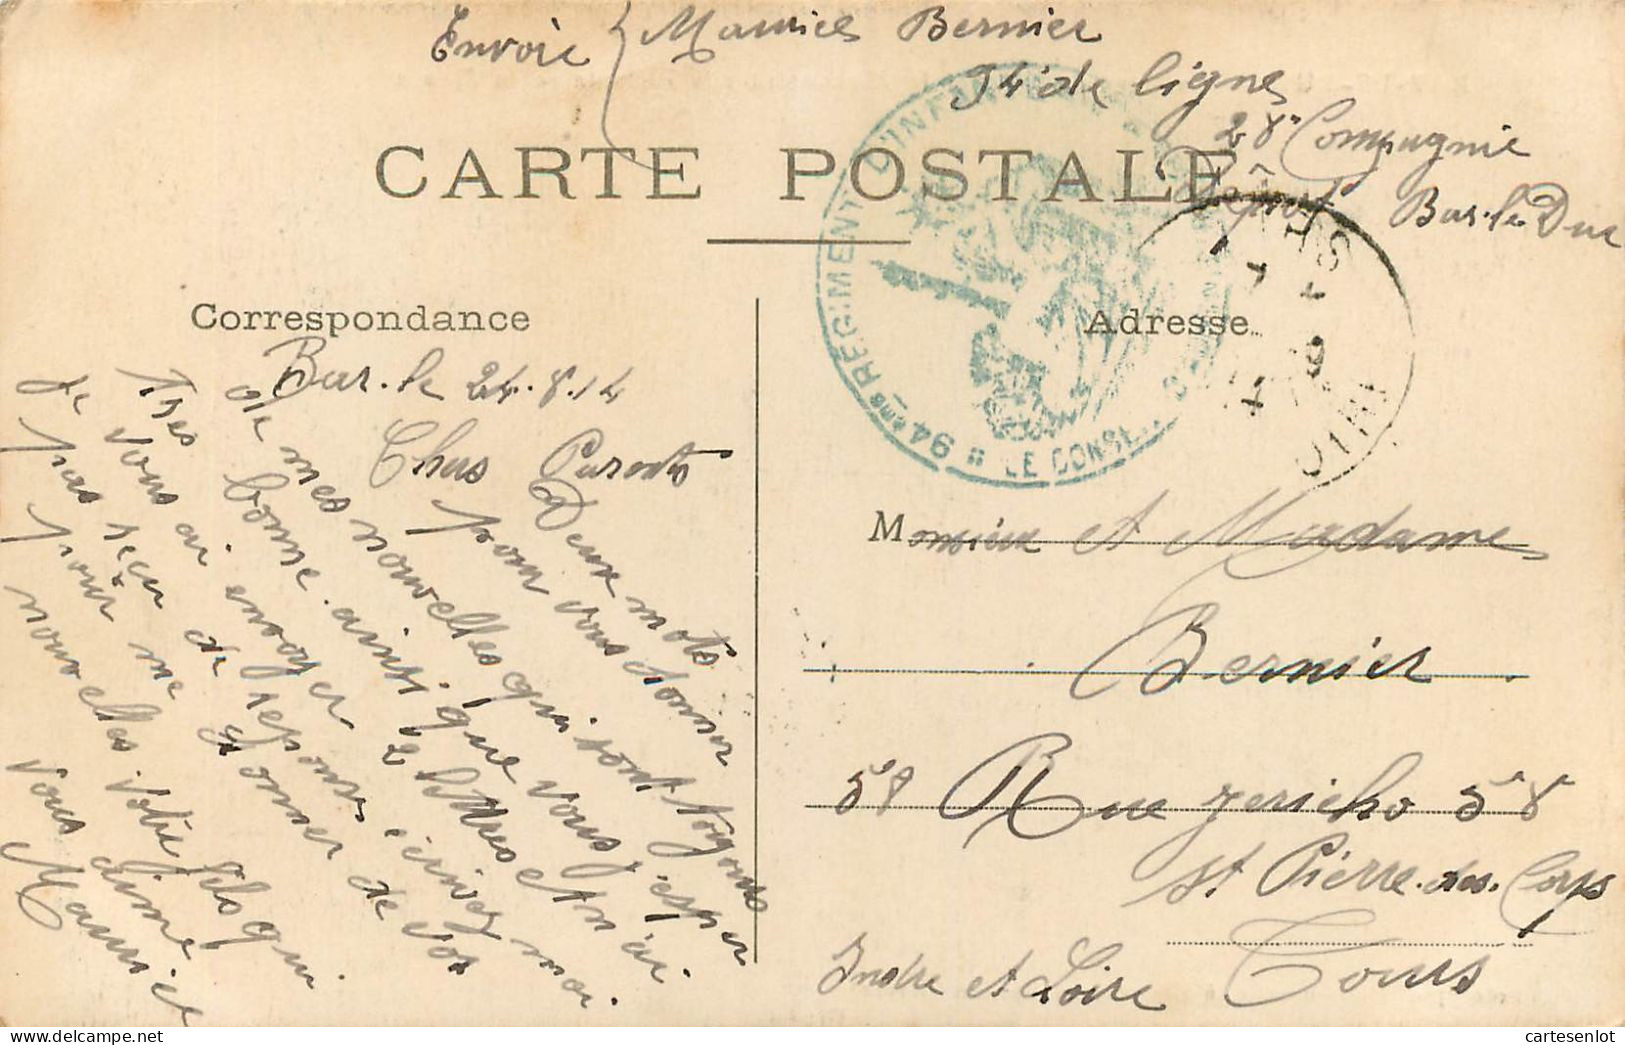 Envoie { Maurice Bernier
94e de ligne
28e Compagnie
Dépôt Bar-le-Duc
CARTE POSTALE
Correspondance
Adresse
94eme REGIMENT D'INFANTERIE
LE CONSEIL
Bar-le 24.8.14
Chers Parents
Deux mots
pour vous donner
de mes nouvelles qui sont toujours
très bonne ainsi que vous j'espère
Je vous ai envoyer 2 lettres et n'ai
pas reçu de réponse, écrivez moi
pour me donner de vos
nouvelles. Votre fils qui
vous aime
Maurice
Monsieur et Madame
Bernier
Rue Jericho 58
St Pierre-des-Corps
Tours
Indre et Loire
cartesenlot.com